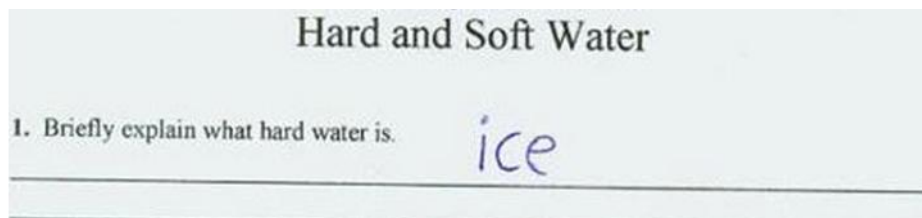 Hard and Soft Water
1. Briefly explain what hard water is. ice